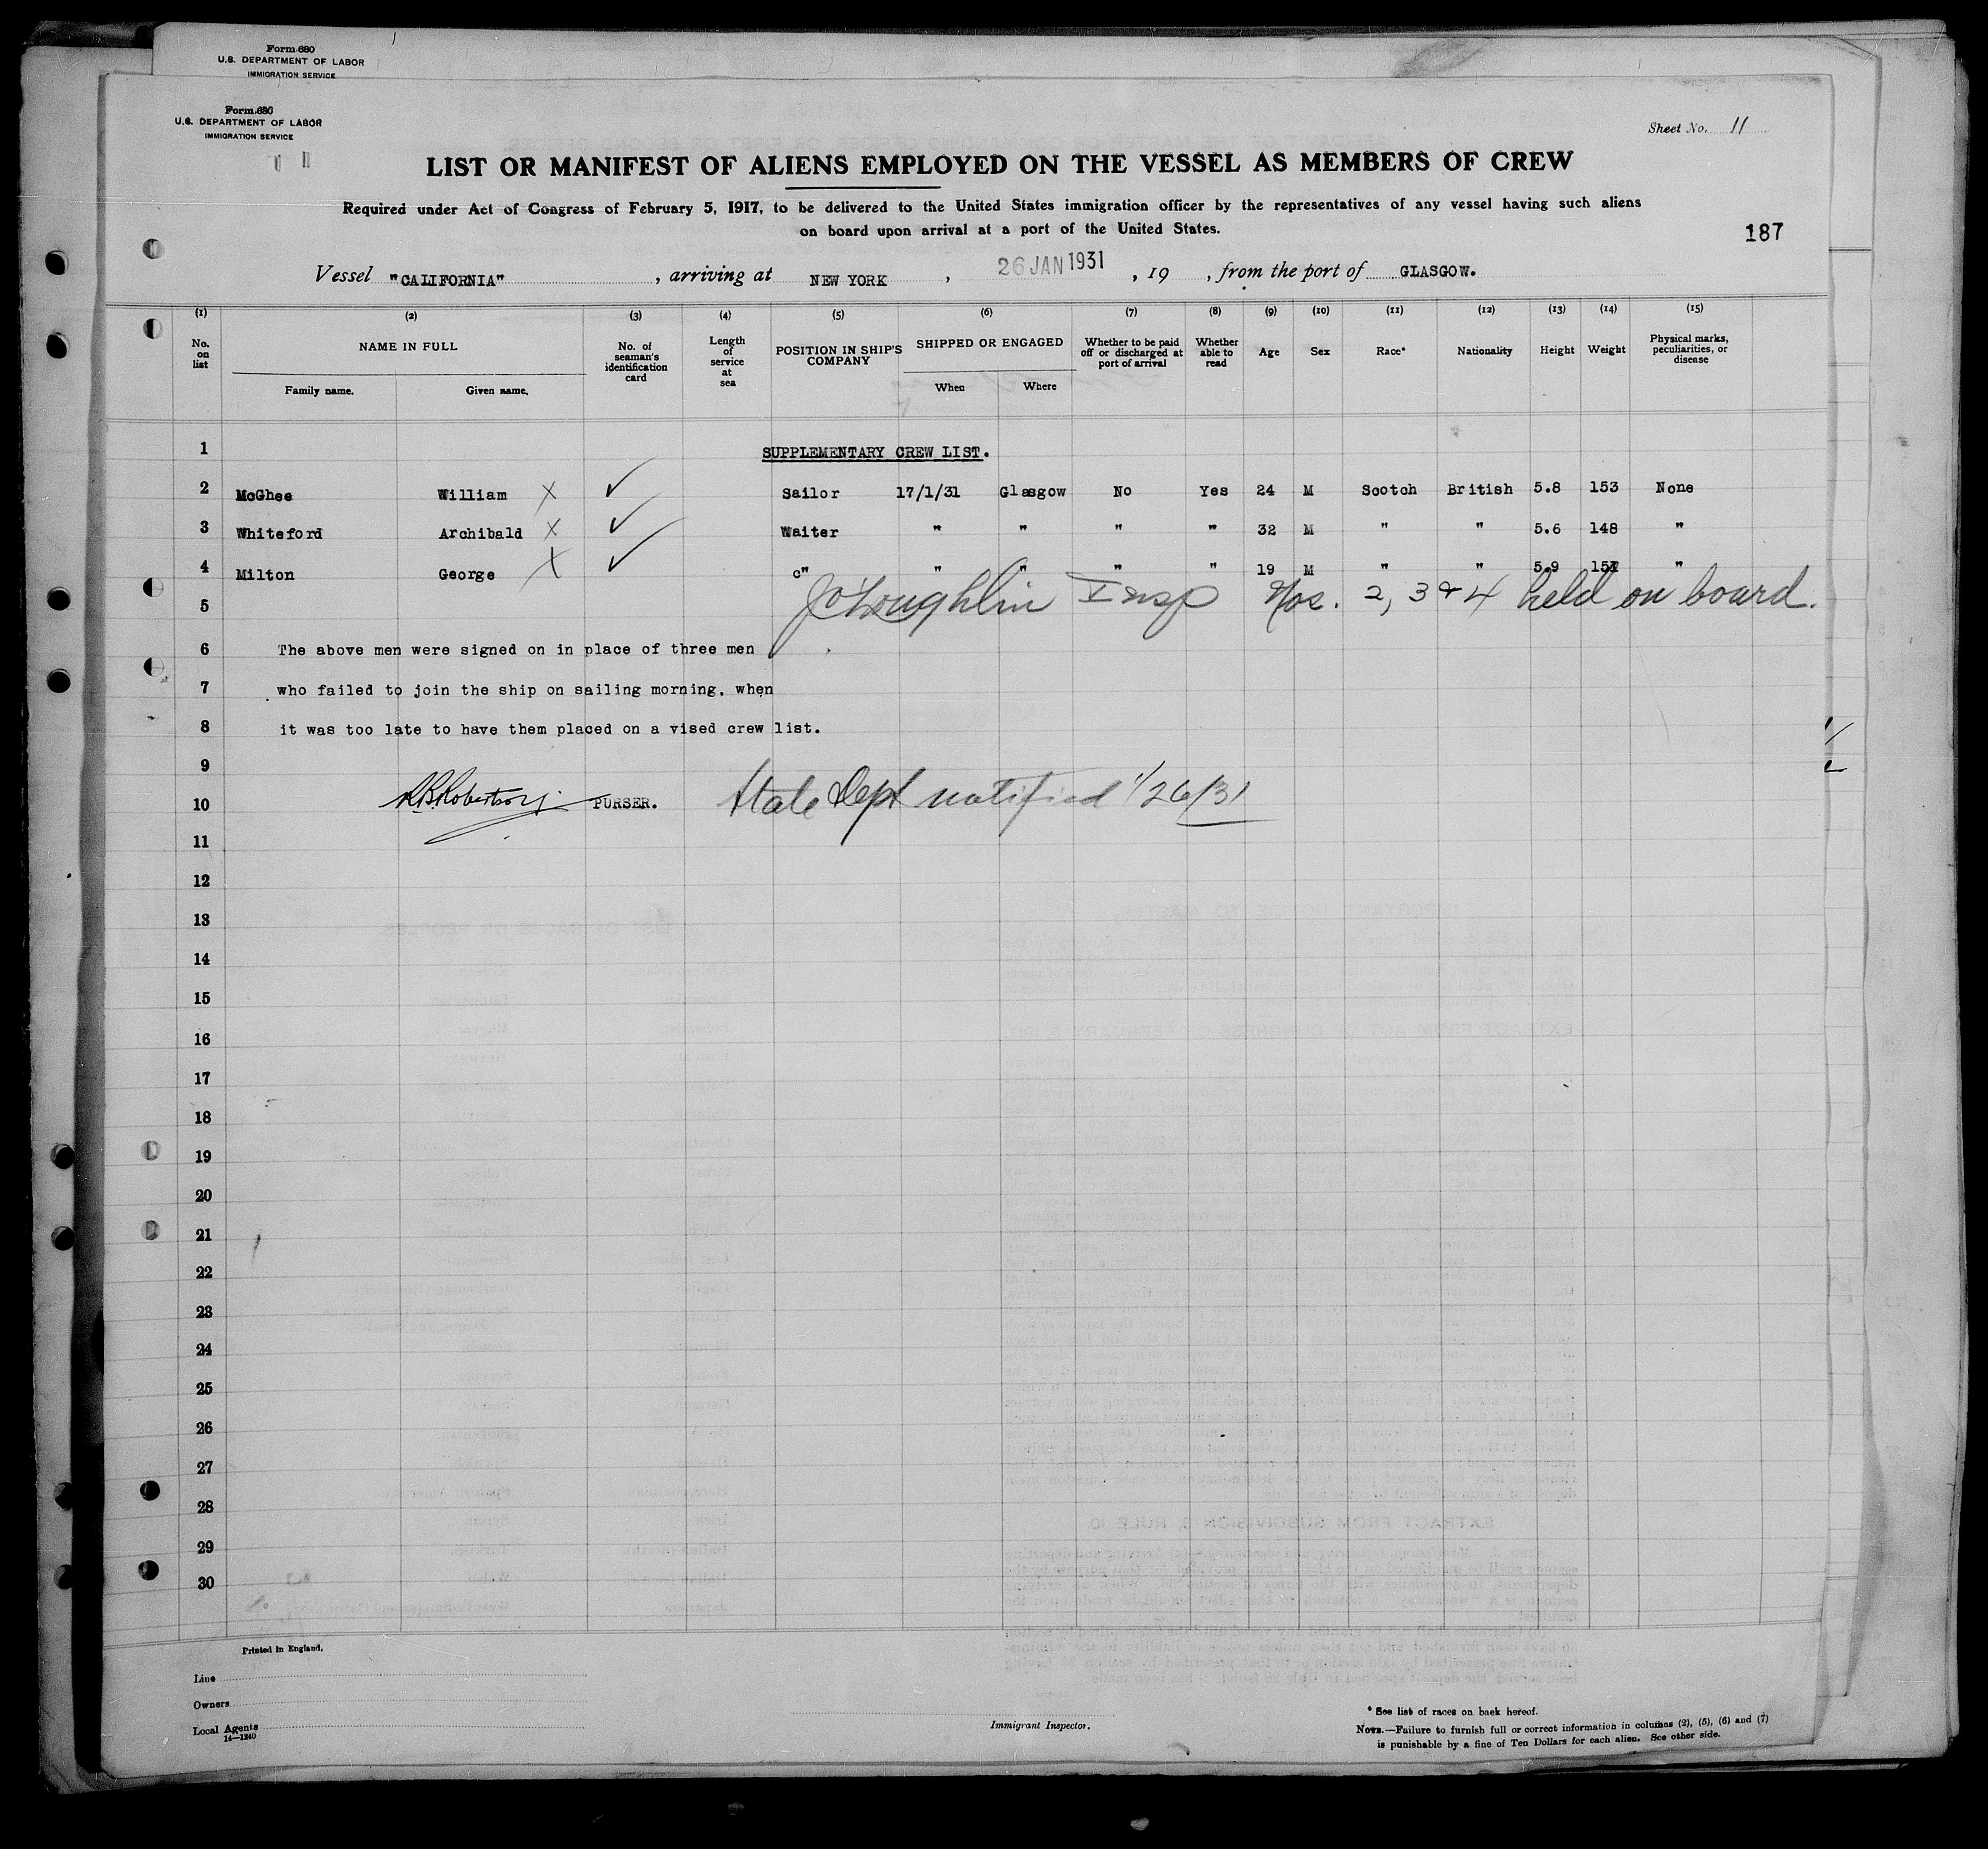 Form 680
U.S. DEPARTMENT OF LABOR
IMMIGRATION SERVICE
Form 680
U.S. DEPARTMENT OF LABOR
IMMIGRATION SERVICE
Sheet No. 11
LIST OR MANIFEST OF ALIENS EMPLOYED ON THE VESSEL AS MEMBERS OF CREW
Required under Act of Congress of February 5, 1917, to be delivered to the United States immigration officer by the representatives of any vessel having such aliens
on board upon arrival at a port of the United States.
187
Vessel "CALIFORNIA", arriving at NEW YORK, 26 JAN 1931, 19 , from the port of GLASGOW.
(1) (2) (3) (4) (5) (6) (7) (8) (9) (10) (11) (12) (13) (14) (15)
No. on list NAME IN FULL Family name. Given name. No. of seaman's identification card Length of service at sea POSITION IN SHIP'S COMPANY SHIPPED OR ENGAGED When Where Whether to be paid off or discharged at port of arrival Whether able to read Age Sex Race* Nationality Height Weight Physical marks, peculiarities, or disease
1 SUPPLEMENTARY CREW LIST.
2 McGhee William X ✓ Sailor 17/1/31 Glasgow No Yes 24 M Scotch British 5.8 153 None
3 Whiteford Archibald X ✓ Waiter " " " " 32 M " " 5.6 148 "
4 Milton George X ✓ c" " " " " 19 M " " 5.9 151 "
5 J O'Loughlin Insp Nos. 2, 3 & 4 held on board.
6 The above men were signed on in place of three men
7 who failed to join the ship on sailing morning. when
8 it was too late to have them placed on a vised crew list.
9
10 R.B.Robertson PURSER. State Dept notified 1/26/31
11
12
13
14
15
16
17
18
19
20
21
22
23
24
25
26
27
28
29
30
Printed in England.
Line
Owners
Local Agents
14—1240
Immigrant Inspector.
* See list of races on back hereof.
NOTE.—Failure to furnish full or correct information in columns (2), (5), (6) and (7)
is punishable by a fine of Ten Dollars for each alien. See other side.